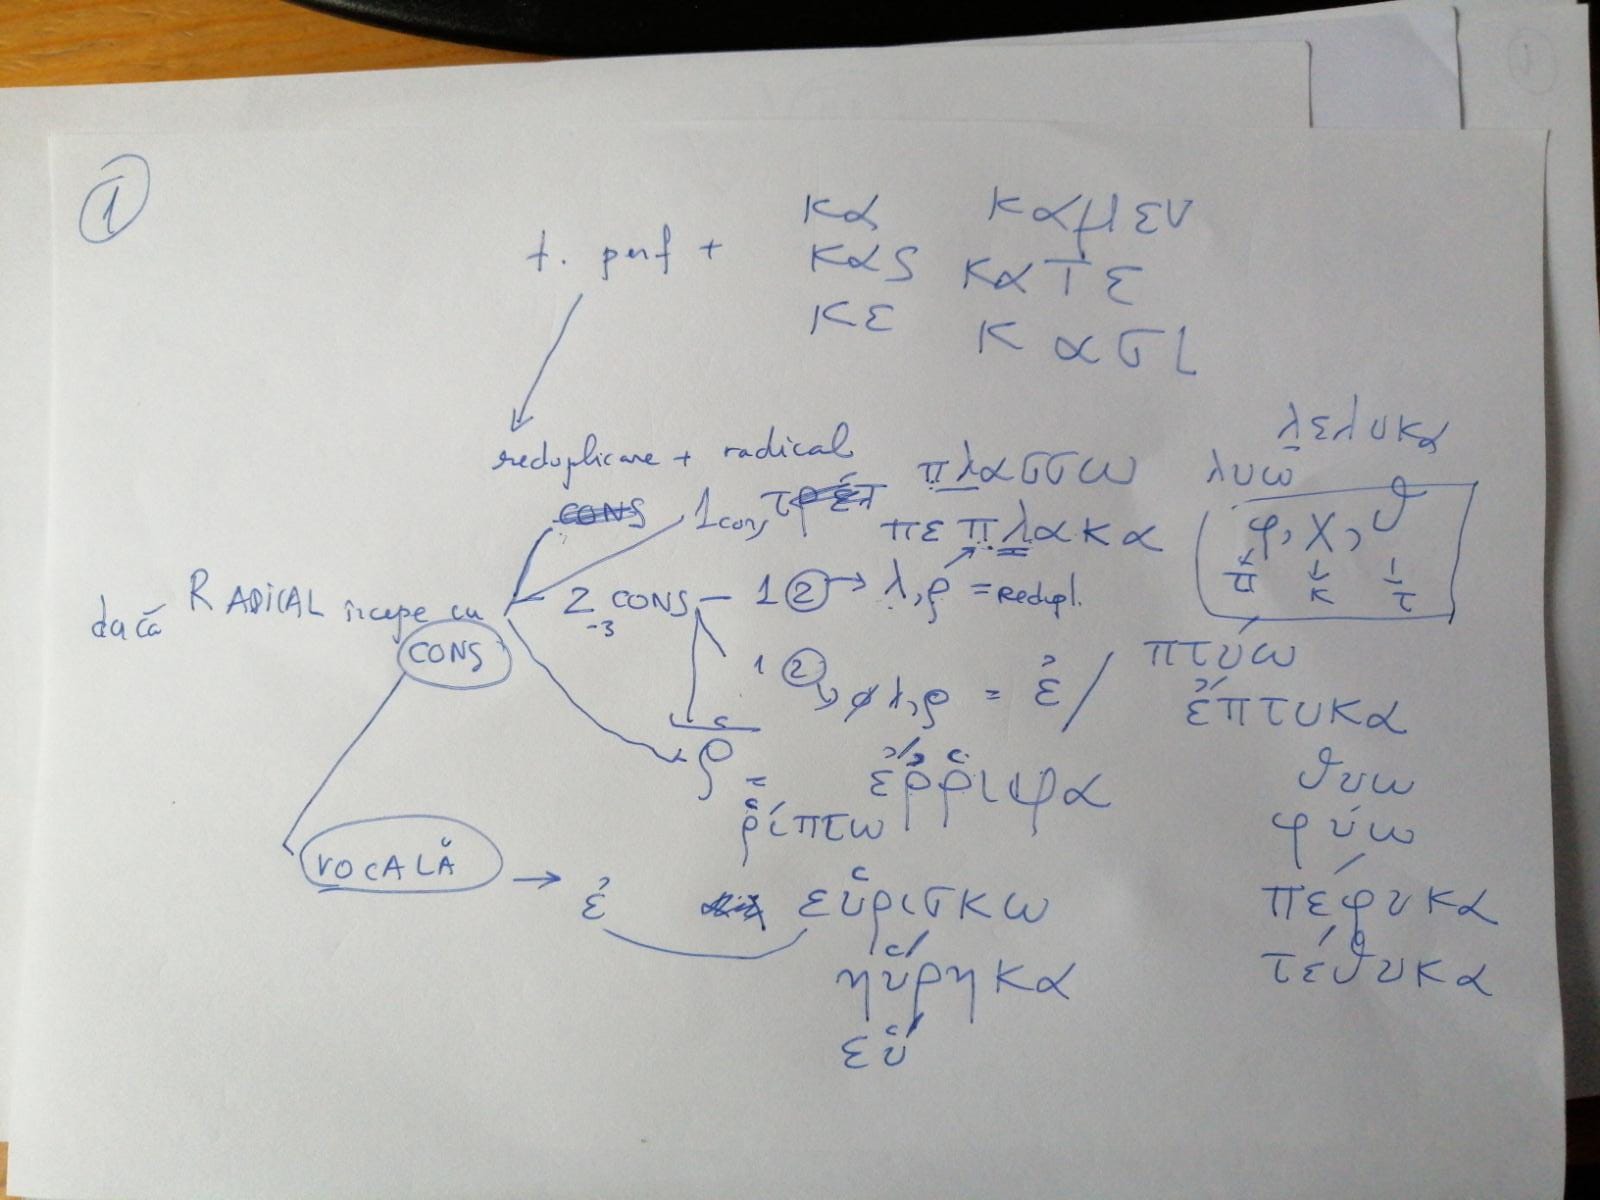 1
κα καμεν
t. perf + κας κατε
κε κασι
λελυκα
reduplicare + radical πλασσω λυω
1 cons πεπλακα φ, χ, θ
π κ τ
dacă RADICAL începe cu 2 CONS – 1 2 → λ, ρ = Redupl.
-3
CONS
1 2 λ, ρ = ἐ / πτύω
ἔπτυκα
ῥ = ἔῤῥιφα θυω
ῥίπτω φύω
VOCALĂ → ἐ εὑρισκω πέφυκα
ηὕρηκα τέθυκα
εὕ